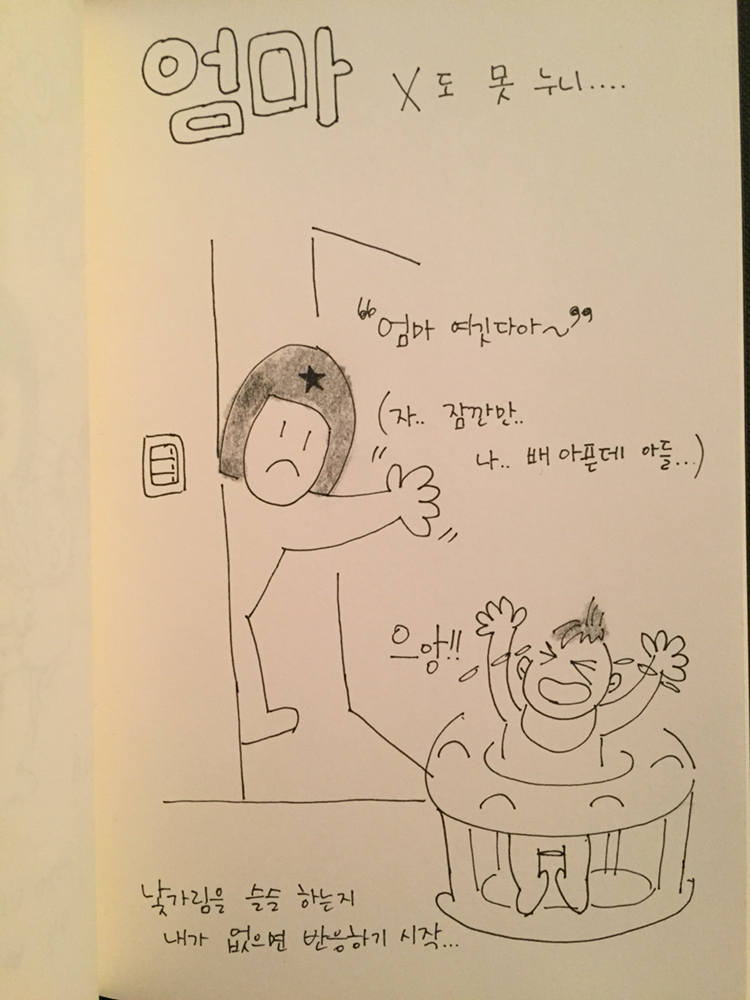 엄마 X도 못 누니....
“엄마 여깃다아~”
(자.. 잠깐만..
나.. 배 아픈데 아들...)
으앙!!
낯가림을 슬슬 하는지
내가 없으면 반응하기 시작...